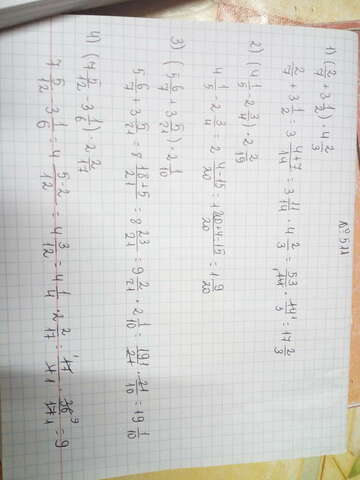 № 511
1) (2/7 + 3 1/2) · 4 2/3
2/7 + 3 1/2 = 3 4+7/14 = 3 11/14 · 4 2/3 = 53/14 · 14/3 = 17 2/3
2) (4 1/5 - 2 3/4) · 2 2/19
4 1/5 - 2 3/4 = 2 4-15/20 = 1 20+4-15/20 = 1 9/20
3) (5 6/7 + 3 5/21) · 2 1/10
5 6/7 + 3 5/21 = 8 18+5/21 = 8 23/21 = 9 2/21 · 2 1/10 = 191/21 · 21/10 = 19 1/10
4) (7 5/12 - 3 1/6) · 2 2/17
7 5/12 - 3 1/6 = 4 5-2/12 = 4 3/12 = 4 1/4 · 2 2/17 = 17/4 · 36/17 = 9